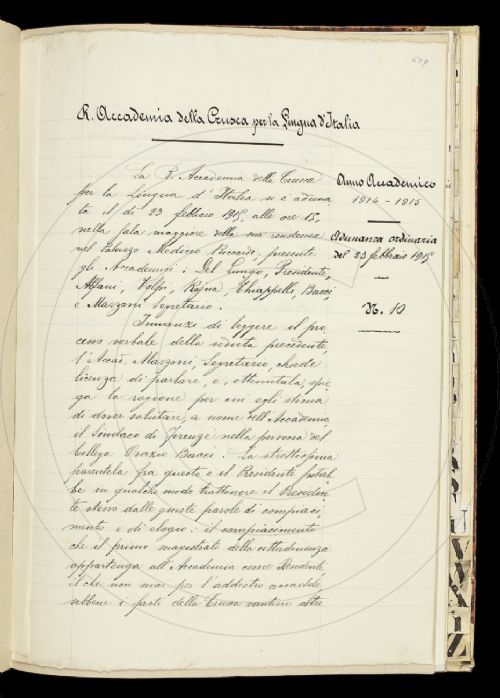 673
R. Accademia della Crusca per la Lingua d'Italia
La R. Accademia della Crusca
per la Lingua d'Italia si è aduna=
ta il dì 23 febbraio 1915, alle ore 15,
nella sala maggiore della sua residenza
nel Palazzo Mediceo Riccardi, presenti
gli Accademici: Del Lungo, Presidente,
Alfani, Volpi, Rajna, Chiappelli, Bacci,
e Mazzoni Segretario.
Innanzi di leggere il pro=
cesso verbale della seduta precedente,
l'Accad. Mazzoni, Segretario, chiede
licenza di parlare, e, ottenutala, spie=
ga la ragione per cui egli stima
di dover salutare, a nome dell'Accademia,
il Sindaco di Firenze nella persona del
Collega Orazio Bacci. La strettissima
parentela fra questo e il Presidente potreb=
be in qualche modo trattenere il Presiden=
te stesso dalle giuste parole di compiaci=
mento e di elogio: il compiacimento
che il primo magistrato della cittadinanza
appartenga all'Accademia come Residente,
il che non mai per l'addietro accadde,
sebbene i fasti della Crusca vantino altre
Anno Accademico
1914 - 1915
Adunanza ordinaria
del 23 febbraio 1915
N. 10